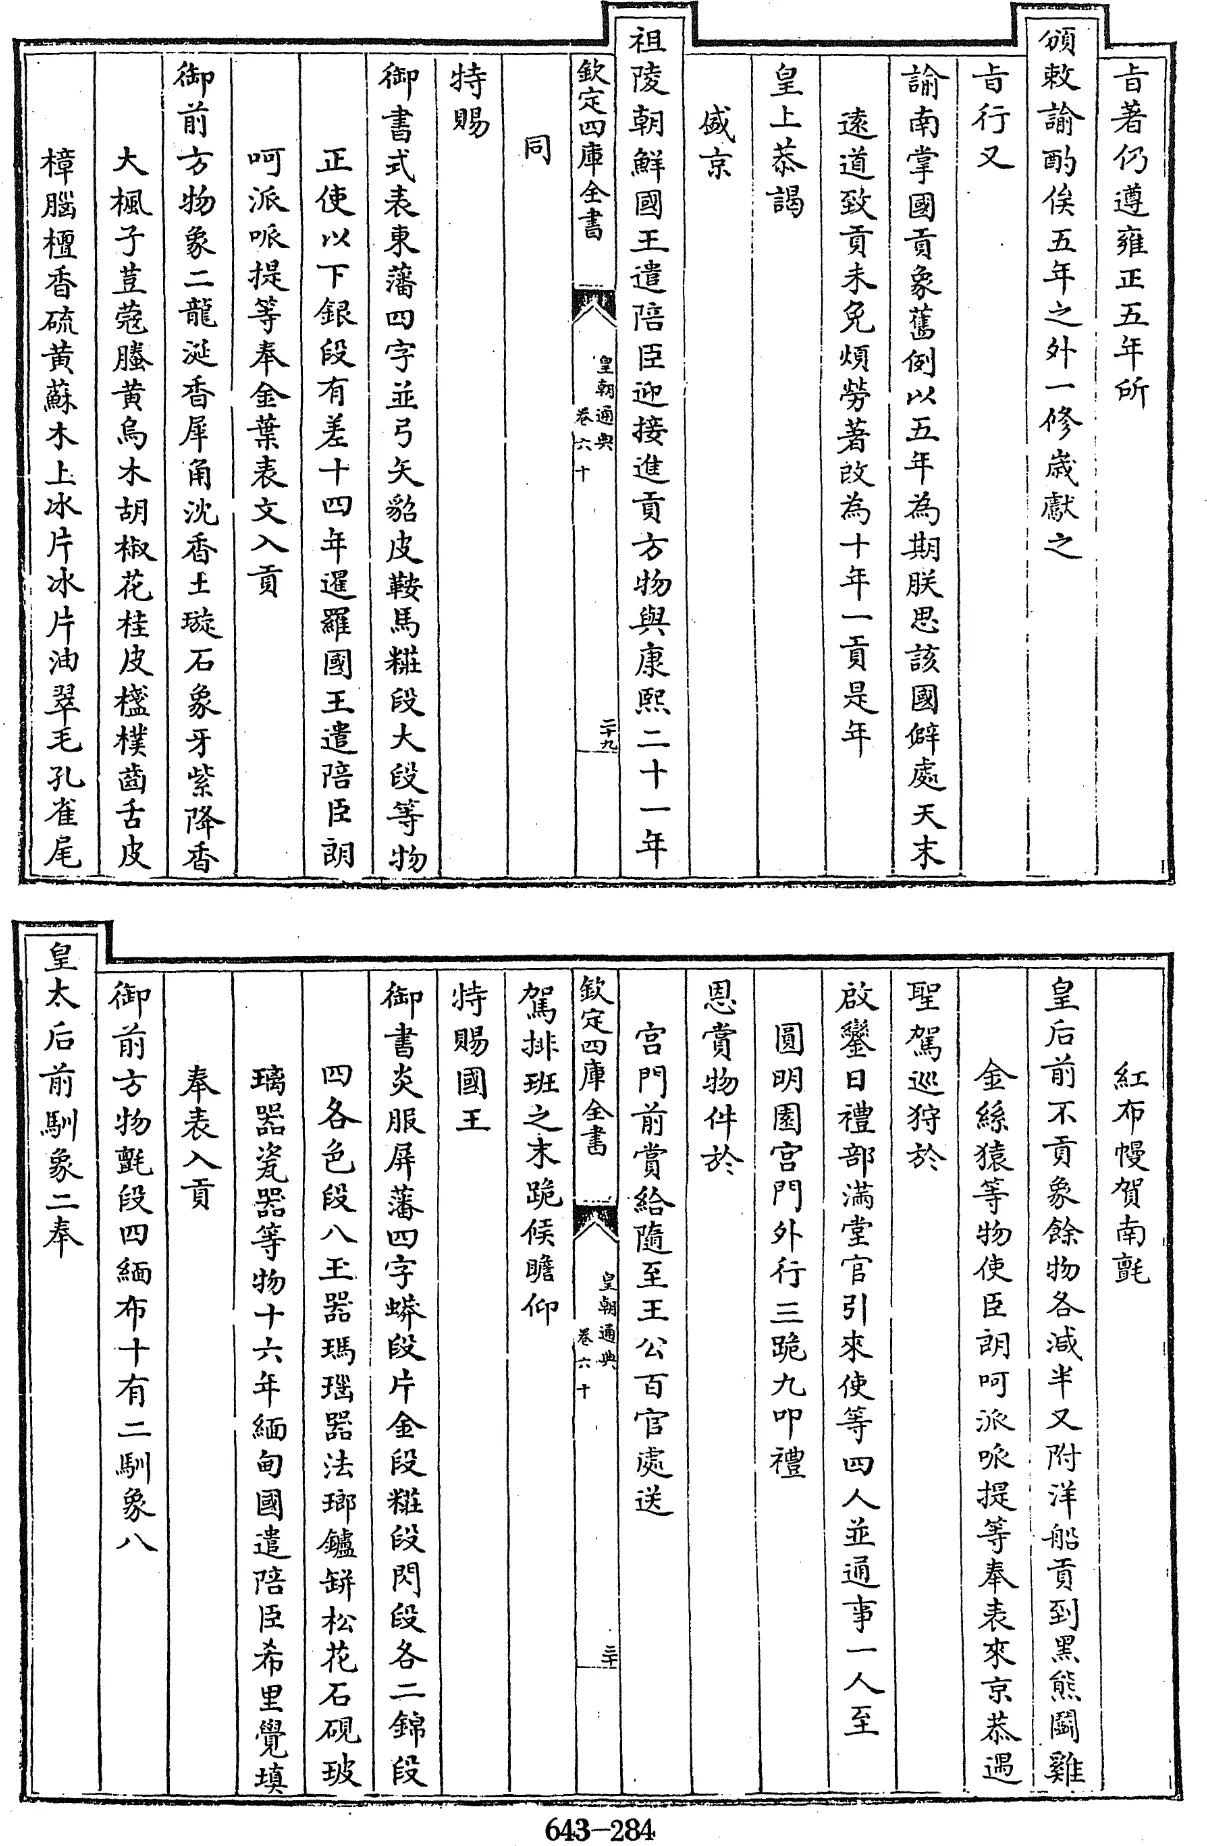 旨著仍遵雍正五年所
頒敕諭酌俟五年之外一修歲獻之
旨行又
諭南掌國貢象舊例以五年為期朕思該國僻處天末
遠道致貢未免煩勞著改為十年一貢是年
皇上恭謁
盛京
祖陵朝鮮國王遣陪臣迎接進貢方物與康熙二十一年
欽定四庫全書
皇朝通典
卷六十
二十九
同
特賜
御書式表東藩四字並弓矢貂皮鞍馬糚段大段等物
正使以下銀段有差十四年暹羅國王遣陪臣朗
呵派哌提等奉金葉表文入貢
御前方物象二龍涎香犀角沈香土璇石象牙紫降香
大楓子荳蔻螣黄烏木胡椒花桂皮㯼樸齒舌皮
樟腦檀香硫黄蘇木上冰片冰片油翠毛孔雀尾
紅布幔賀南氈
皇后前不貢象餘物各減半又附洋船貢到黑熊鬬雞
金絲猿等物使臣朗呵派哌提等奉表來京恭遇
聖駕巡狩於
啟鑾日禮部滿堂官引來使等四人並通事一人至
圓明園宫門外行三跪九叩禮
恩賞物件於
宫門前賞給隨至王公百官處送
欽定四庫全書
皇朝通典
卷六十
三十
駕排班之末跪候瞻仰
特賜國王
御書炎服屏藩四字蟒段片金段糚段閃段各二錦段
四各色段八玉器瑪瑙器法瑯鑪缾松花石硯玻
璃器瓷器等物十六年緬甸國遣陪臣希里覺填
奉表入貢
御前方物氈段四緬布十有二馴象八
皇太后前馴象二奉
643-284